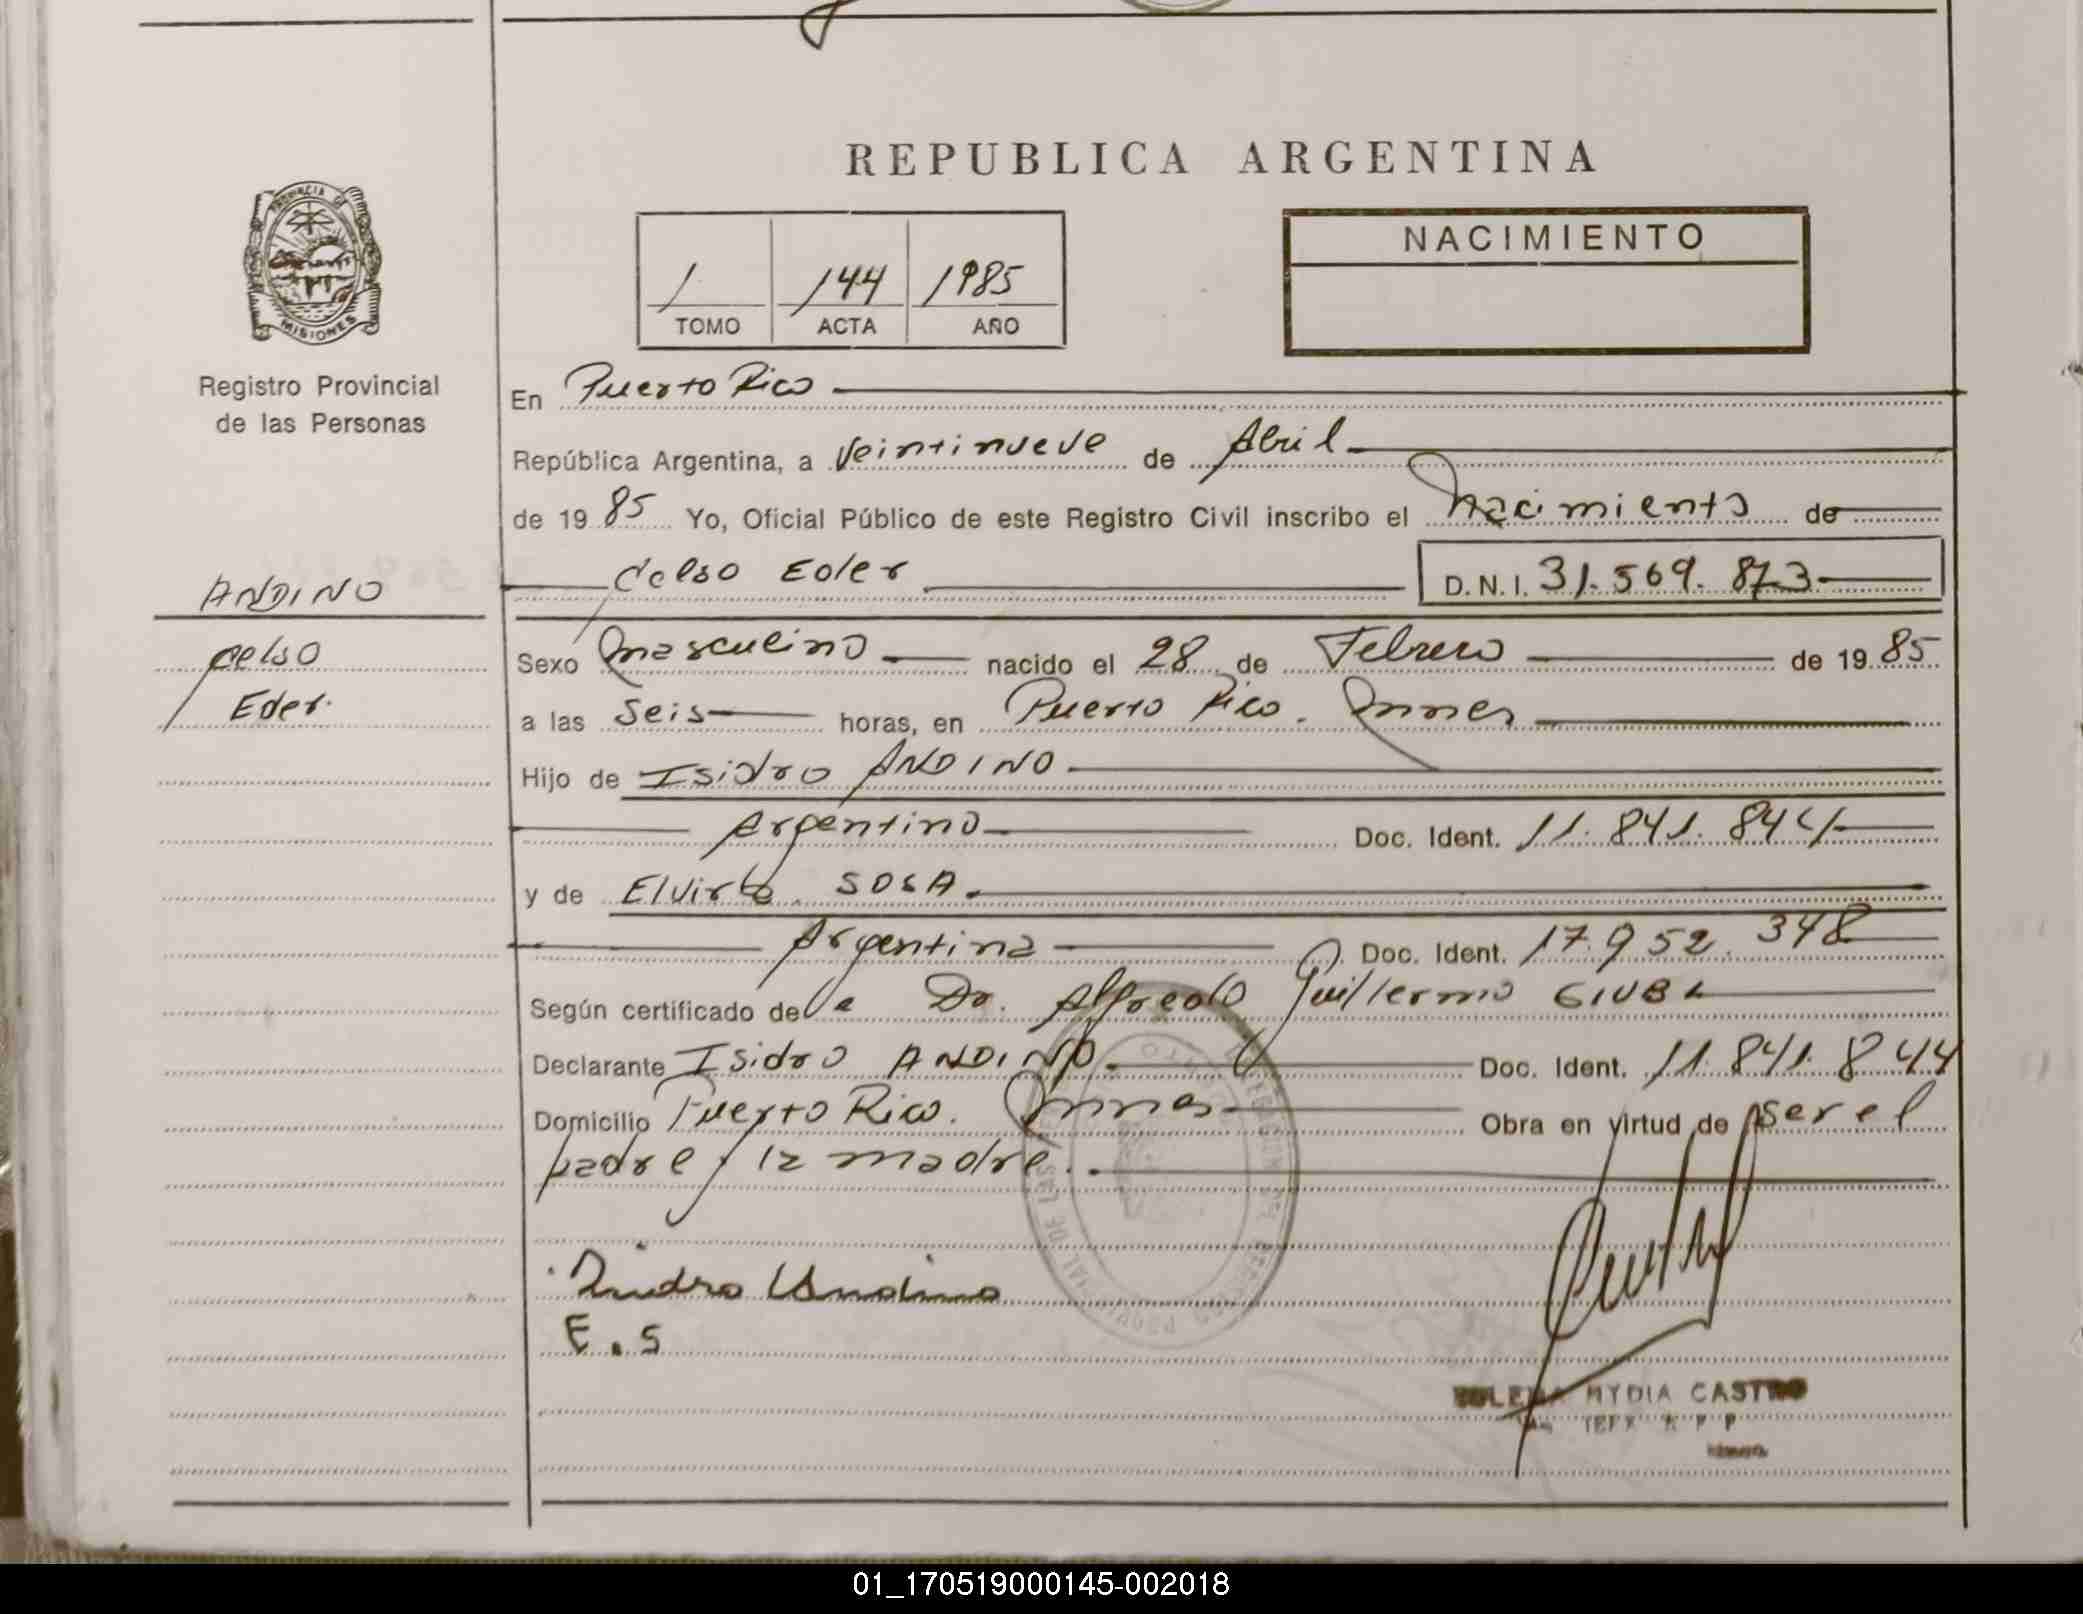 REPUBLICA ARGENTINA
PROVINCIA DE
MISIONES
Registro Provincial
de las Personas
1 144 1985
TOMO ACTA AÑO
NACIMIENTO
En Puerto Rico
República Argentina, a Veintinueve de Abril
de 1985 Yo, Oficial Público de este Registro Civil inscribo el Nacimiento de
Celso Eder D.N.I. 31.569.873
ANDINO
Celso
Eder.
Sexo masculino nacido el 28 de Febrero de 1985
a las Seis horas, en Puerto Rico. Mnes
Hijo de Isidro ANDINO
Argentino Doc. Ident. 11.841.844
y de Elvira SOSA.
Argentina Doc. Ident. 17.952.348
Según certificado de la Dr. Alfredo Guillermo
Declarante Isidro ANDINO Doc. Ident. 11.841.844
Domicilio Puerto Rico. Mnes Obra en virtud de ser el
padre y la madre.
Isidro Andino
E.S
MYDIA CASTRO
01_170519000145-002018